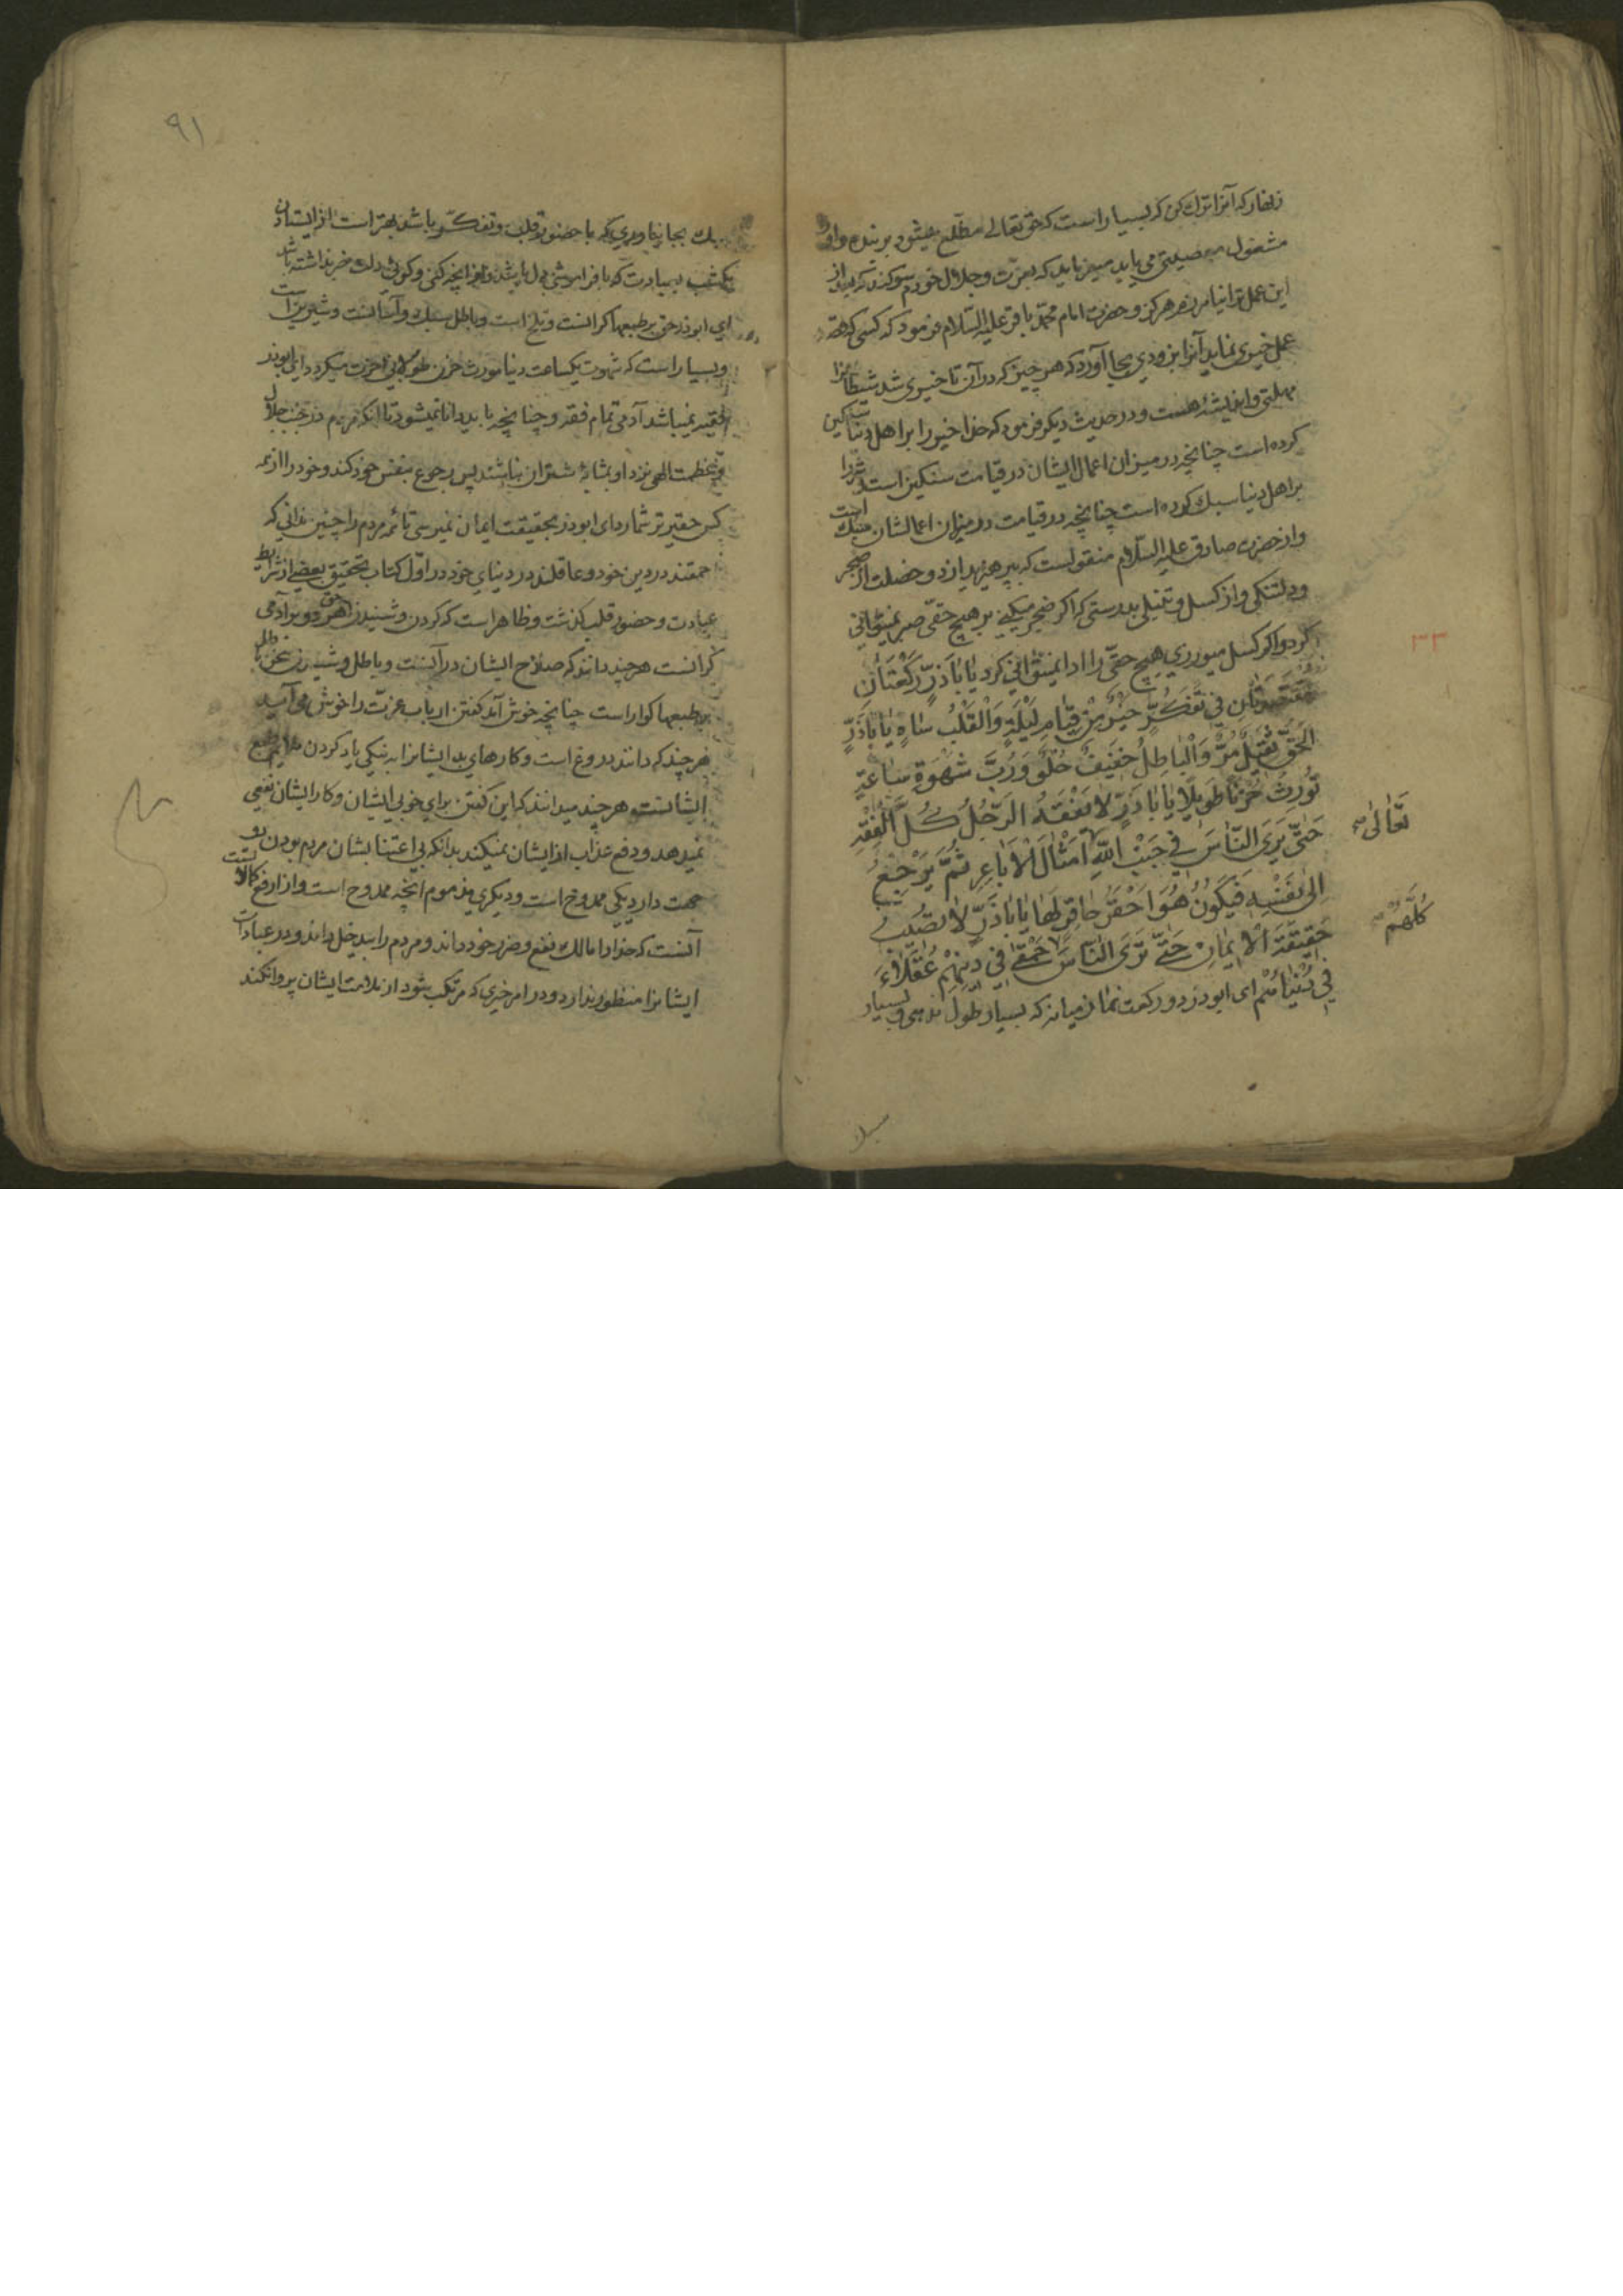 زنهار که آنرا ترک کن که بسیار است که حق تعالی مطّلع میشود بر بنده و او
مشغول معصیتی می یابد میفرماید که بعزّت و جلال خودم سوکند که بعد از
این عمل ترا نیامرزم هرکز و حضرت امام محمّد باقر علیه السّلام فرمود که کسی که قصد
عمل خیری نماید آنرا بزودی بجا آورد که هر چیز که در آن تاخیری شد شیطانرا
مهلتی و اندیشهٔ هست و در حدیث دیکر فرمود که خدا خیر را بر اهل دنیا سنکین
کرده است چنانچه در میزان اعمال ایشان در قیامت سنکین است و شر را
بر اهل دنیا سبک کرده است چنانچه در قیامت در میزان اعمالشان سبک است
و از حضرت صادق علیه السّلام منقول است که بپرهیزید از دو خصلت از ضجر
و دلتنکی و از کسل و تنبلی بدرستی که اکر ضجر میکنی بر هیچ حقّی صبر نمیتوانی
کرد و اکر کسل میورزی هیچ حقّی را ادا نمیتوانی کرد یٰا بٰاذَرٍّ رَکْعَتٰانِ
مُقْتَصِدَتٰانِ فی تَفَکُّرٍ خَیْرٌ مِنْ قِیٰامِ لَیْلَةٍ وَالْقَلْبُ سٰاهٍ یٰا بٰاذَرٍّ
الْحَقُّ ثَقِیلٌ مُرٌّ وَالْبٰاطِلُ خَفِیفٌ حُلْوٌ وَرُبَّ شَهْوَةِ سٰاعَةٍ
تُورِثُ حُزْنًا طَوِیلًا یٰا بٰاذَرٍّ لٰا یَفْقَهُ الرَّجُلُ کُلَّ الْفِقْهِ
حَتّٰی یَرَی النّٰاسَ فی جَنْبِ اللّٰهِ اَمْثٰالَ الْاَبٰاعِرِ ثُمَّ یَرْجِعُ
تَعٰالٰی
اِلٰی نَفْسِهِ فَیَکُونُ هُوَ اَحْقَرَ حٰاقِرٍ لَهٰا یٰا بٰاذَرٍّ لٰا تُصِیبُ
کُلَّهُمْ
حَقِیقَةَ الْاِیمٰانِ حَتّٰی تَرَی النّٰاسَ حَمْقٰی فی دِینِهِمْ عُقَلٰاءَ
فی دُنْیٰاهُمْ ای ابوذر دو رکعت نماز میانه که بسیار طول ندهی و بسیار
سبک
٣٣
٩١
سبک بجا نیاوری که با حضور قلب و تفکّر باشد بهتر است از ایستادن
یکشب بعبادت که با فراموشی دل باشد
ای ابوذر حق بر طبعها کرانست و تلخ است و باطل سبک و آسانست و شیرین است
و بسیار است که شهوت یکساعت دنیا مورث حزن طولانی آخرت میکردد ای ابوذر
فقیه نمیباشد آدمی تمام فقه و چنانچه باید دانا نمیشود تا آنکه مردم در جنب جلال
و عظمت الهی نزد او بمثابهٔ شتران نباشند پس رجوع بنفس خود کند و خود را از همه
کس حقیرتر شمارد ای ابوذر بحقیقت ایمان نمیرسی تا همه مردم را چنین ندانی که
احمقند در دین خود و عاقلند در دنیای خود در اوّل کتاب تحقیق بعضی از شرایط
عبادت و حضور قلب کذشت و ظاهر است که کردن و شنیدن حق هر دو بر آدمی
کرانست هر چند دانند که صلاح ایشان در آنست و باطل و شنیدن سخن باطل
بر طبعها کواراست چنانچه خوش آمد کفتن ارباب عزّت را خوش می آید
هر چند که دانند دروغ است و کارهای بد ایشانرا به نیکی یاد کردن ملایم طبع
ایشانست هر چند میدانند که این کفتن برای خوبی ایشان و کار ایشان نفعی
نمیدهد و دفع عذاب از ایشان نمیکند بدانکه بی اعتنا بشان مردم بودن دو
جهت دارد یکی ممدوح است و دیکری مذموم آنچه ممدوح است و از ارفع کمالات
آنست که خدا را مالک نفع و ضرر خود داند و مردم را بیدخل داند و در عبادات
ایشانرا منظور ندارد و در امر خیری که مرتکب شود از ملامت ایشان پروا نکند